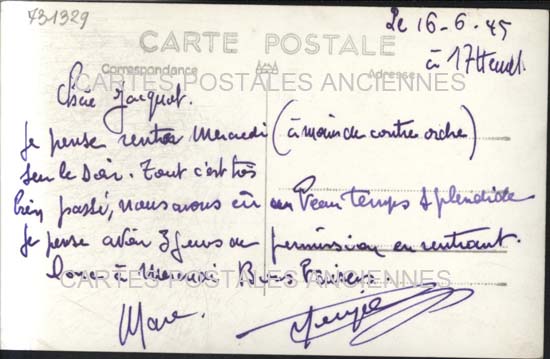 731329
Le 16-6-45
à 17 Heures.
CARTE POSTALE
Correspondance Adresse
CARTES POSTALES ANCIENNES
Chère Jacquot.
Je pense rentrer Mercredi (à moins de contre ordre)
sur le Soir. Tout c'est très
bien passé, nous avons eu un Beau temps splendide
Je pense avoir 3 jours de permission en rentrant.
Donc à Mercredi Bons Baisers.
CARTES POSTALES ANCIENNES
Marc.